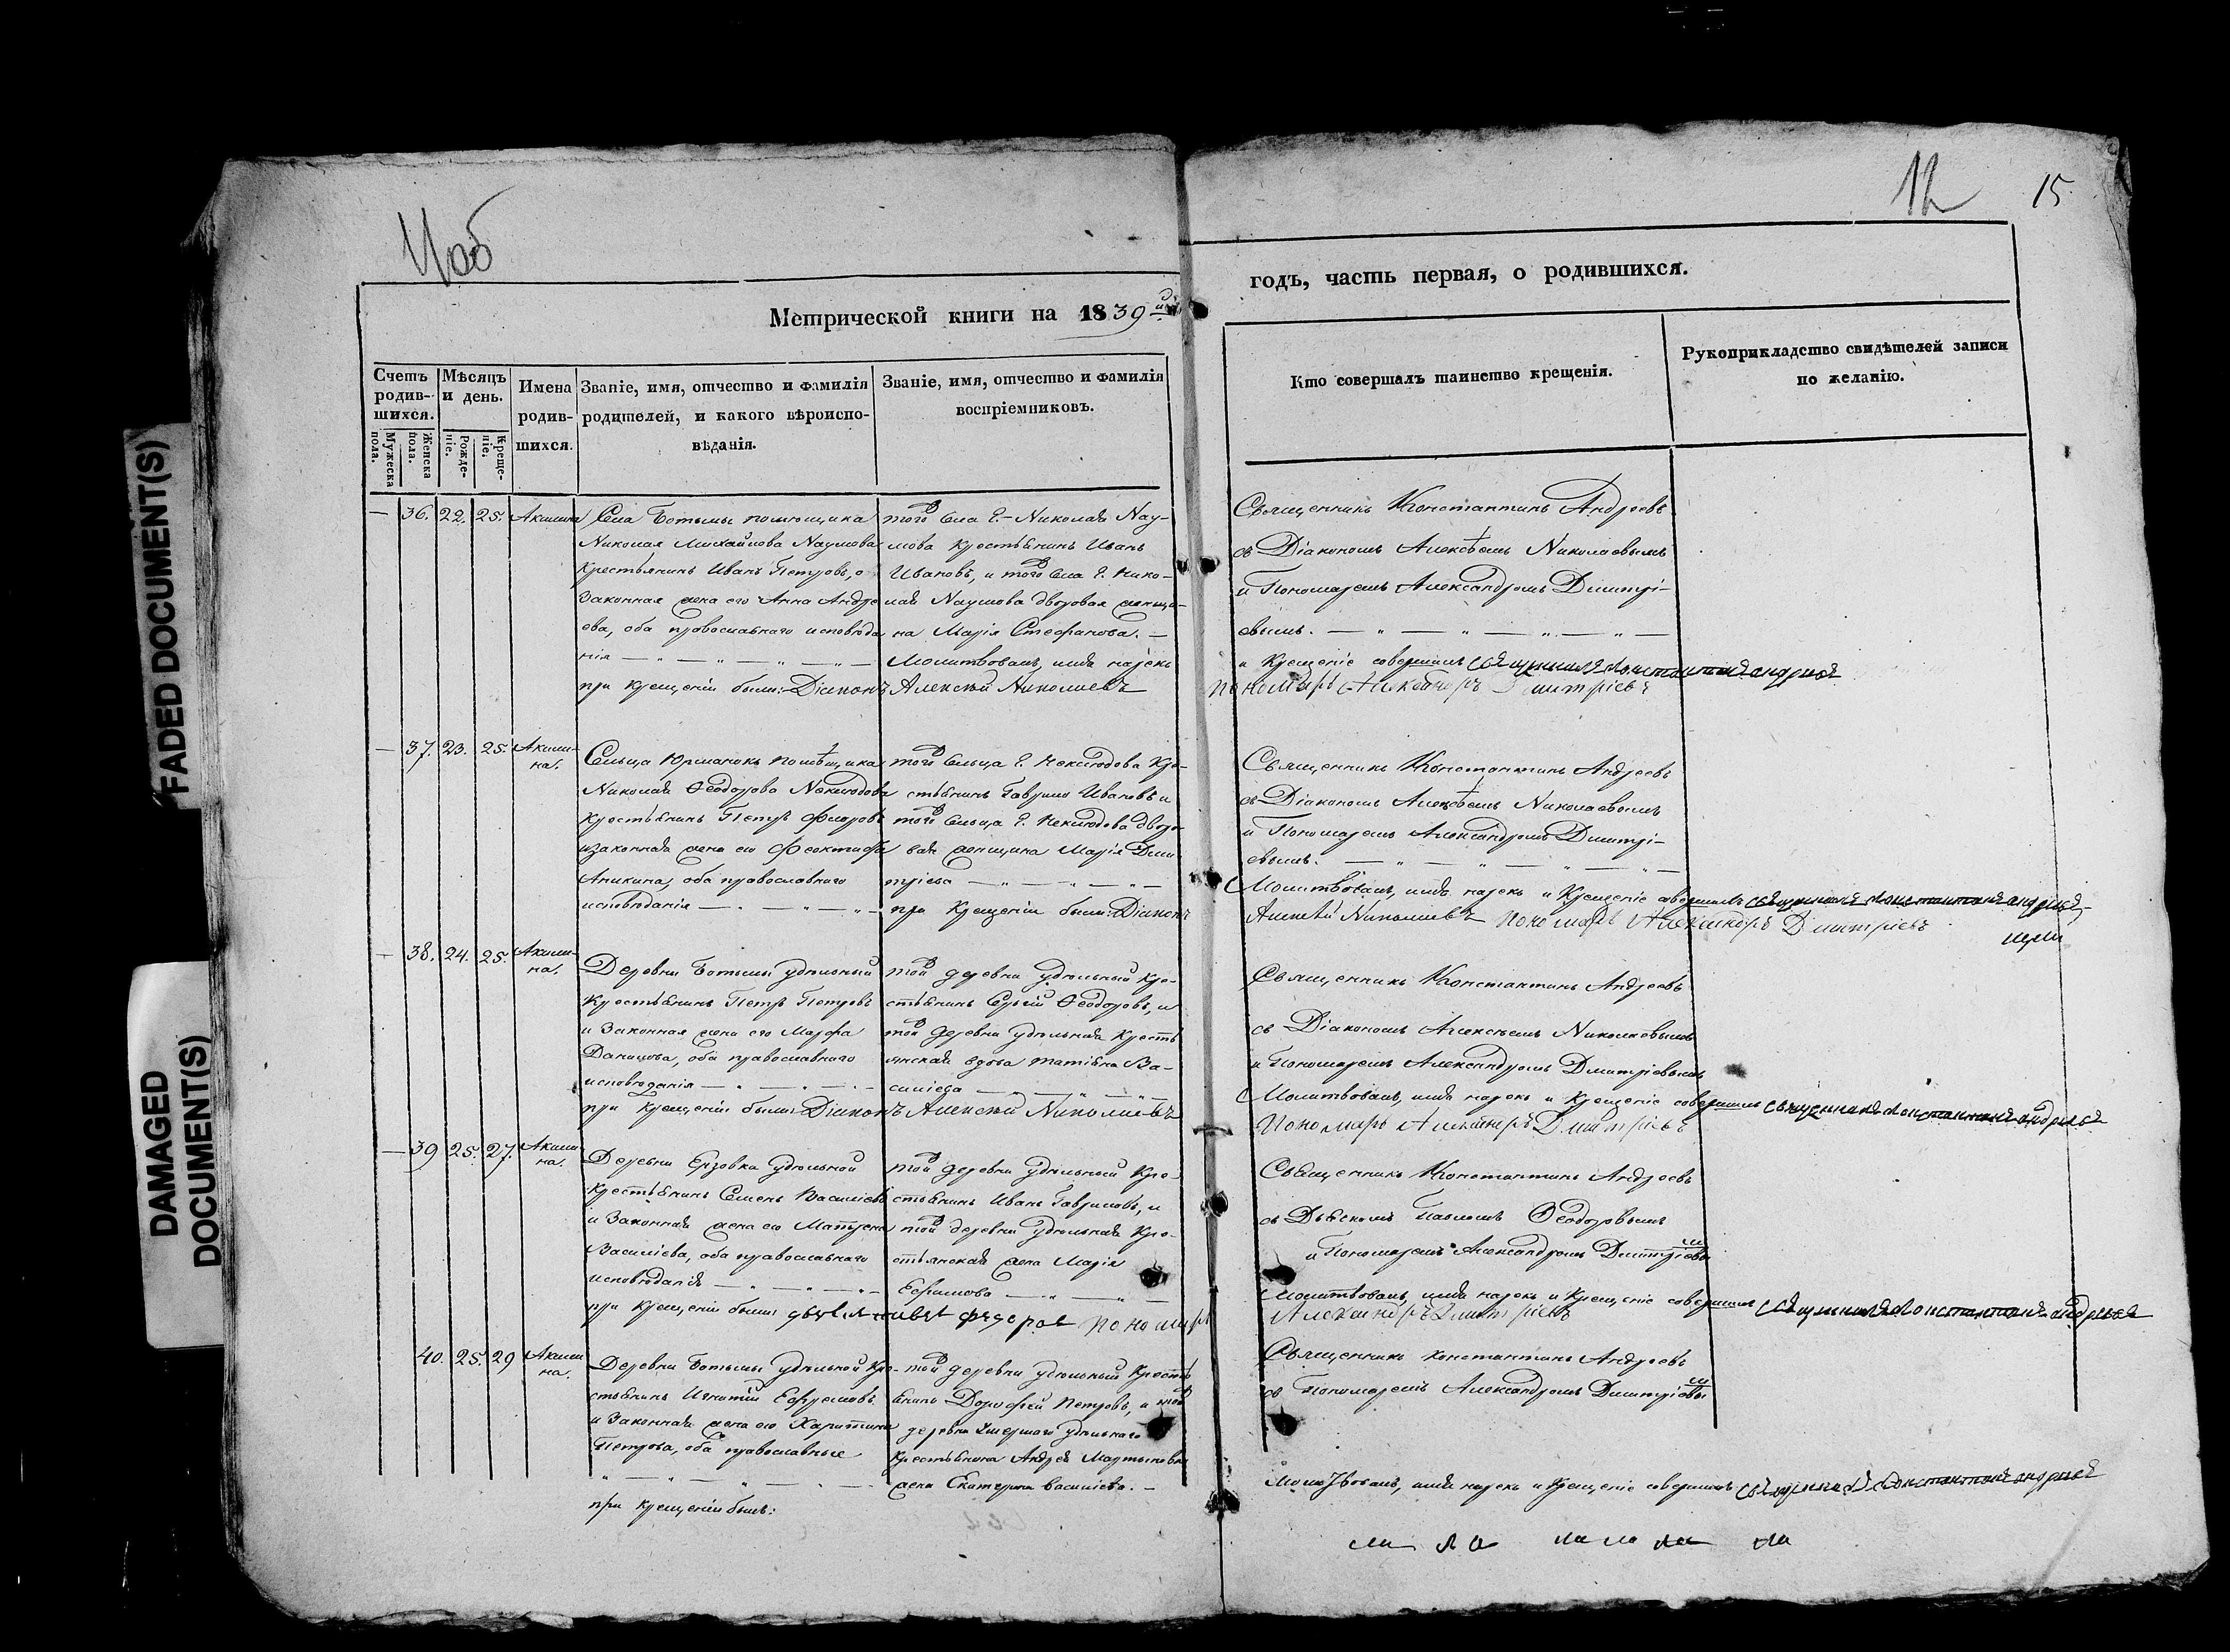 FADED DOCUMENT(S)
DAMAGED
DOCUMENT(S)
12 15
Метрической книги на 1839
годъ, часть первая, о родившихся.
Счетъ родив-шихся.
Мужеска пола.
Женска пола.
Мѣсяцъ и день.
Рожде-ніе.
Креще-ніе.
Имена родив-шихся.
Званіе, имя, отчество и фамилія
родителей, и какого вѣроиспо-
вѣданія.
Званіе, имя, отчество и фамилія
воспріемниковъ.
Кто совершалъ таинство крещенія.
Рукоприкладство свидѣтелей записи
по желанію.
— 36. 22. 25. Акилина
Села Ботьмы помющика
Николая Михайлова Наумова
Крестьянинъ Иванъ Петровъ, о
Законная жена его Анна Андре
ева, оба православнаго исповѣда
нія — " — " — " — " —
при крещеніи были: Діаконъ Алексѣй Николаевъ
того Села Г. Николая Нау-
мова Крестьянинъ Иванъ
Ивановъ, и того Села Г. Нико-
лая Наумова дворовая женщи-
на Марія Стефанова. —
Молитвовалъ, имя нарекъ
Священникъ Константинъ Андреевъ
съ Діакономъ Алексѣемъ Николаевымъ
и Пономаремъ Александромъ Димитрі-
евымъ. — " — " — " — " —
и Крещеніе совершилъ священникъ Константинъ Андреевъ
Пономарь Александръ Дмитріевъ
— 37. 23. 25. Акили-
на.
Сельца Юрманокъ помѣщика
Николая Ѳеодорова Неклюдова
Крестьянинъ Петръ Флоровъ
и законная жена его Феоктиста
Аникина, оба православнаго
исповѣданія — " — " — " —
того Сельца Г. Неклюдова Кре-
стьянинъ Гаврило Ивановъ и
того Сельца Г. Неклюдова дворо-
вая женщина Марія Дми
тріева — " — " — " —
при Крещеніи были: Діаконъ
Священникъ Константинъ Андреевъ
съ Діакономъ Алексѣемъ Николаевымъ
и Пономаремъ Александромъ Дмитрі-
евымъ. — " — " — " — " —
Молитвовалъ, имя нарекъ и Крещеніе совершилъ священникъ Константинъ Андреевъ
Алексѣй Николаевъ Пономарь Александръ Дмитріевъ
— 38. 24. 25. Акили-
на.
Деревни Ботьмы удѣльный
Крестьянинъ Петръ Петровъ
и Законная жена его Марфа
Данилова, оба православнаго
исповѣданія — " — " — " —
при Крещеніи были: Діаконъ Алексѣй Николаевъ
той деревни удѣльный Кре-
стьянинъ Сергій Ѳеодоровъ, и
той деревни удѣльная Кресть
янская вдова Татіана Ва-
силіева — " — " — " —
Священникъ Константинъ Андреевъ
съ Діакономъ Алексѣемъ Николаевымъ
и Пономаремъ Александромъ Дмитріевымъ
Молитвовалъ, имя нарекъ и Крещеніе совершилъ священникъ Константинъ Андреевъ
Пономарь Александръ Дмитріевъ
— 39 25. 27. Акили
на.
Деревни Ерзовки удѣльной
Крестьянинъ Семенъ Василіевъ
и Законная жена его Матрена
Василіева, оба православнаго
исповѣданія — " — " — " —
при Крещеніи были: дьячекъ Павел Федоров Пономарь
той деревни удѣльной Кре-
стьянинъ Иванъ Гавриловъ, и
той деревни удѣльная Кре-
стьянская жена Марія
Ефимова — " — " —
Священникъ Константинъ Андреевъ
съ Дьячкомъ Павломъ Ѳеодоровымъ
и Пономаремъ Александромъ Дмитріевым
Молитвовалъ, имя нарекъ и Крещеніе совершилъ священникъ Константинъ Андреевъ
Александръ Дмитріевъ
40. 25. 29 Акили
на.
Деревни Ботьмы удѣльной Кре-
стьянинъ Игнатій Ефремовъ
и Законная жена его Харитина
Петрова, оба православные
" — " — " — " —
при Крещеніи былъ:
той деревни удѣльный Кресть
янинъ Дорофей Петровъ, и той
деревни умершаго удѣльнаго
Крестьянина Андрея Мартынова
жена Екатерина Василіева. —
Священникъ Константинъ Андреевъ
съ Пономаремъ Александромъ Дмитріевым
Молитвовалъ, имя нарекъ и Крещеніе совершилъ священникъ Константинъ Андреевъ